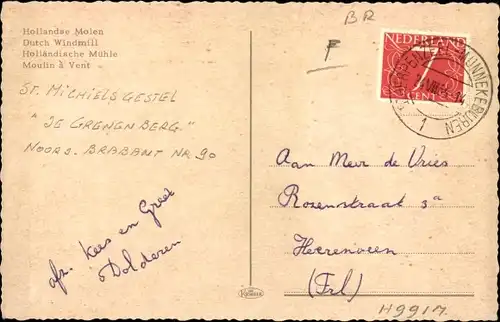 Hollandse Molen
Dutch Windmill
Holländische Mühle
Moulin à Vent
BR
F
NEDERLAND
7
CENT
1
ST. MICHIELSGESTEL
"DE GRENGNBERG."
NOORD. BRABANT NR 90
afz. Kees en Greet
Dolderen
Aan Meur de Vries
Rozenstraat 3a
Heerenveen
(Frl)
H9917